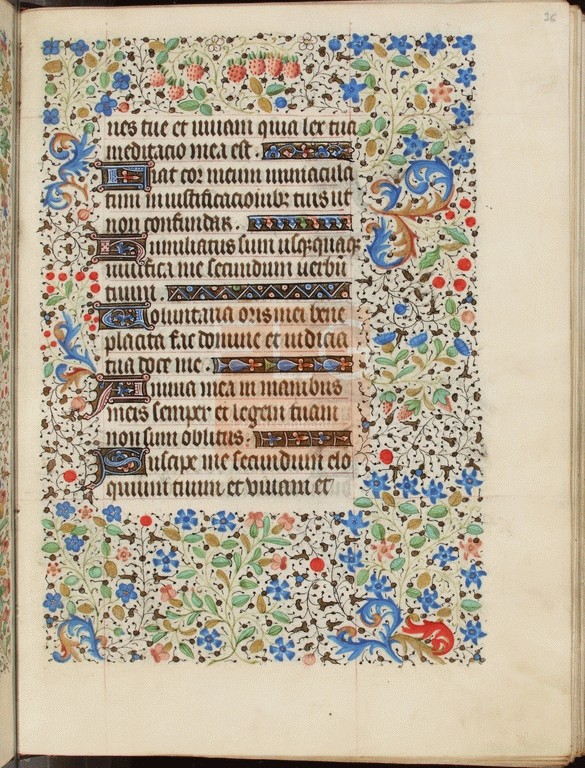 36
nes tue et uiuam quia lex tua
meditacio mea est.
Fiat cor meum immacula
tum in iustificacionibꝫ tuis ut
non confundar.
Humiliatus sum usqꝫquaqꝫ
uiuifica me secundum uerbū
tuum.
Uoluntaria oris mei bene
placita fac domine et iudicia
tua doce me.
Anima mea in manibus
meis semper et legem tuam
non sum oblitus.
Suscipe me secundum elo
quium tuum et viuam et